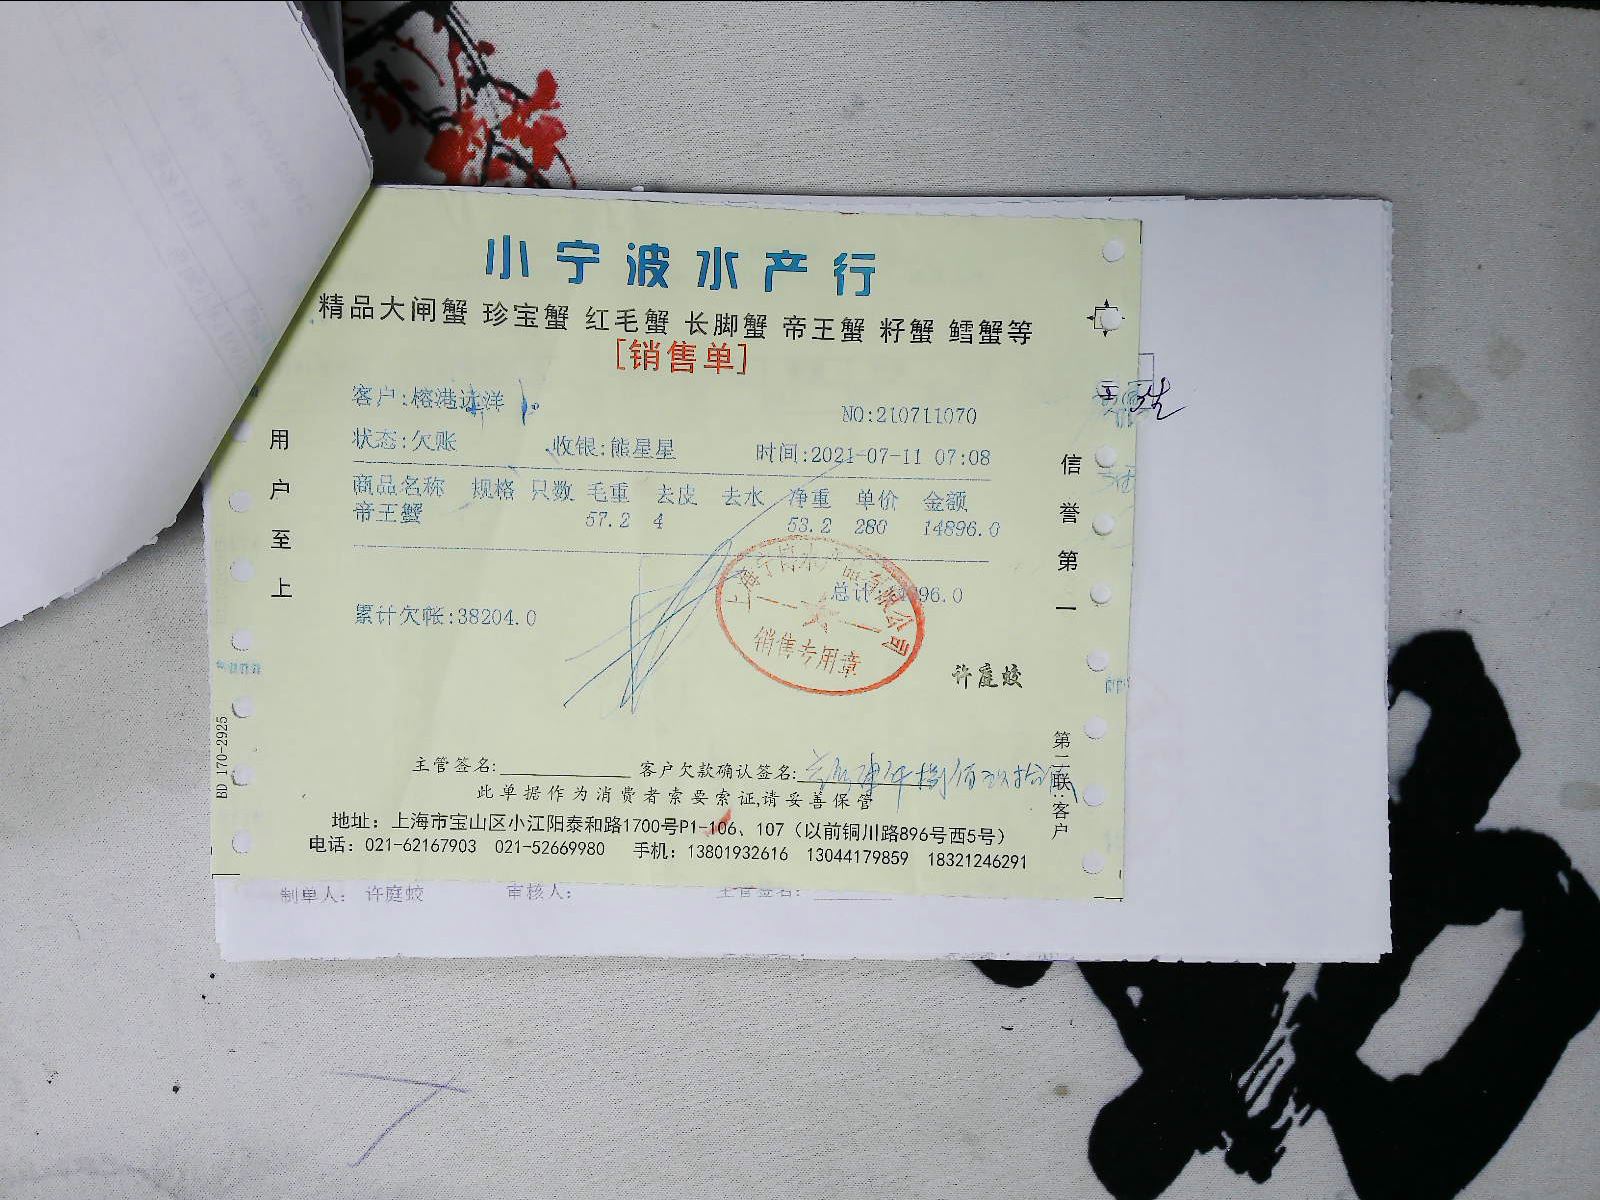 小宁波水产行
精品大闸蟹 珍宝蟹 红毛蟹 长脚蟹 帝王蟹 籽蟹 鳕蟹等
[销售单]
客户:榕港远洋
NO:210711070
状态:欠账 收银:熊星星 时间:2021-07-11 07:08
商品名称 规格 只数 毛重 去皮 去水 净重 单价 金额
帝王蟹 57.2 4 53.2 280 14896.0
总计: 96.0
累计欠帐:38204.0
销售专用章
许庭蛟
用户至上
信誉第一
BD 170-2925
第二联:客户
主管签名: 客户欠款确认签名:
此单据作为消费者索要索证,请妥善保管
地址：上海市宝山区小江阳泰和路1700号P1-106、107（以前铜川路896号西5号）
电话：021-62167903 021-52669980 手机：13801932616 13044179859 18321246291
制单人: 许庭蛟 审核人: 主管签名: